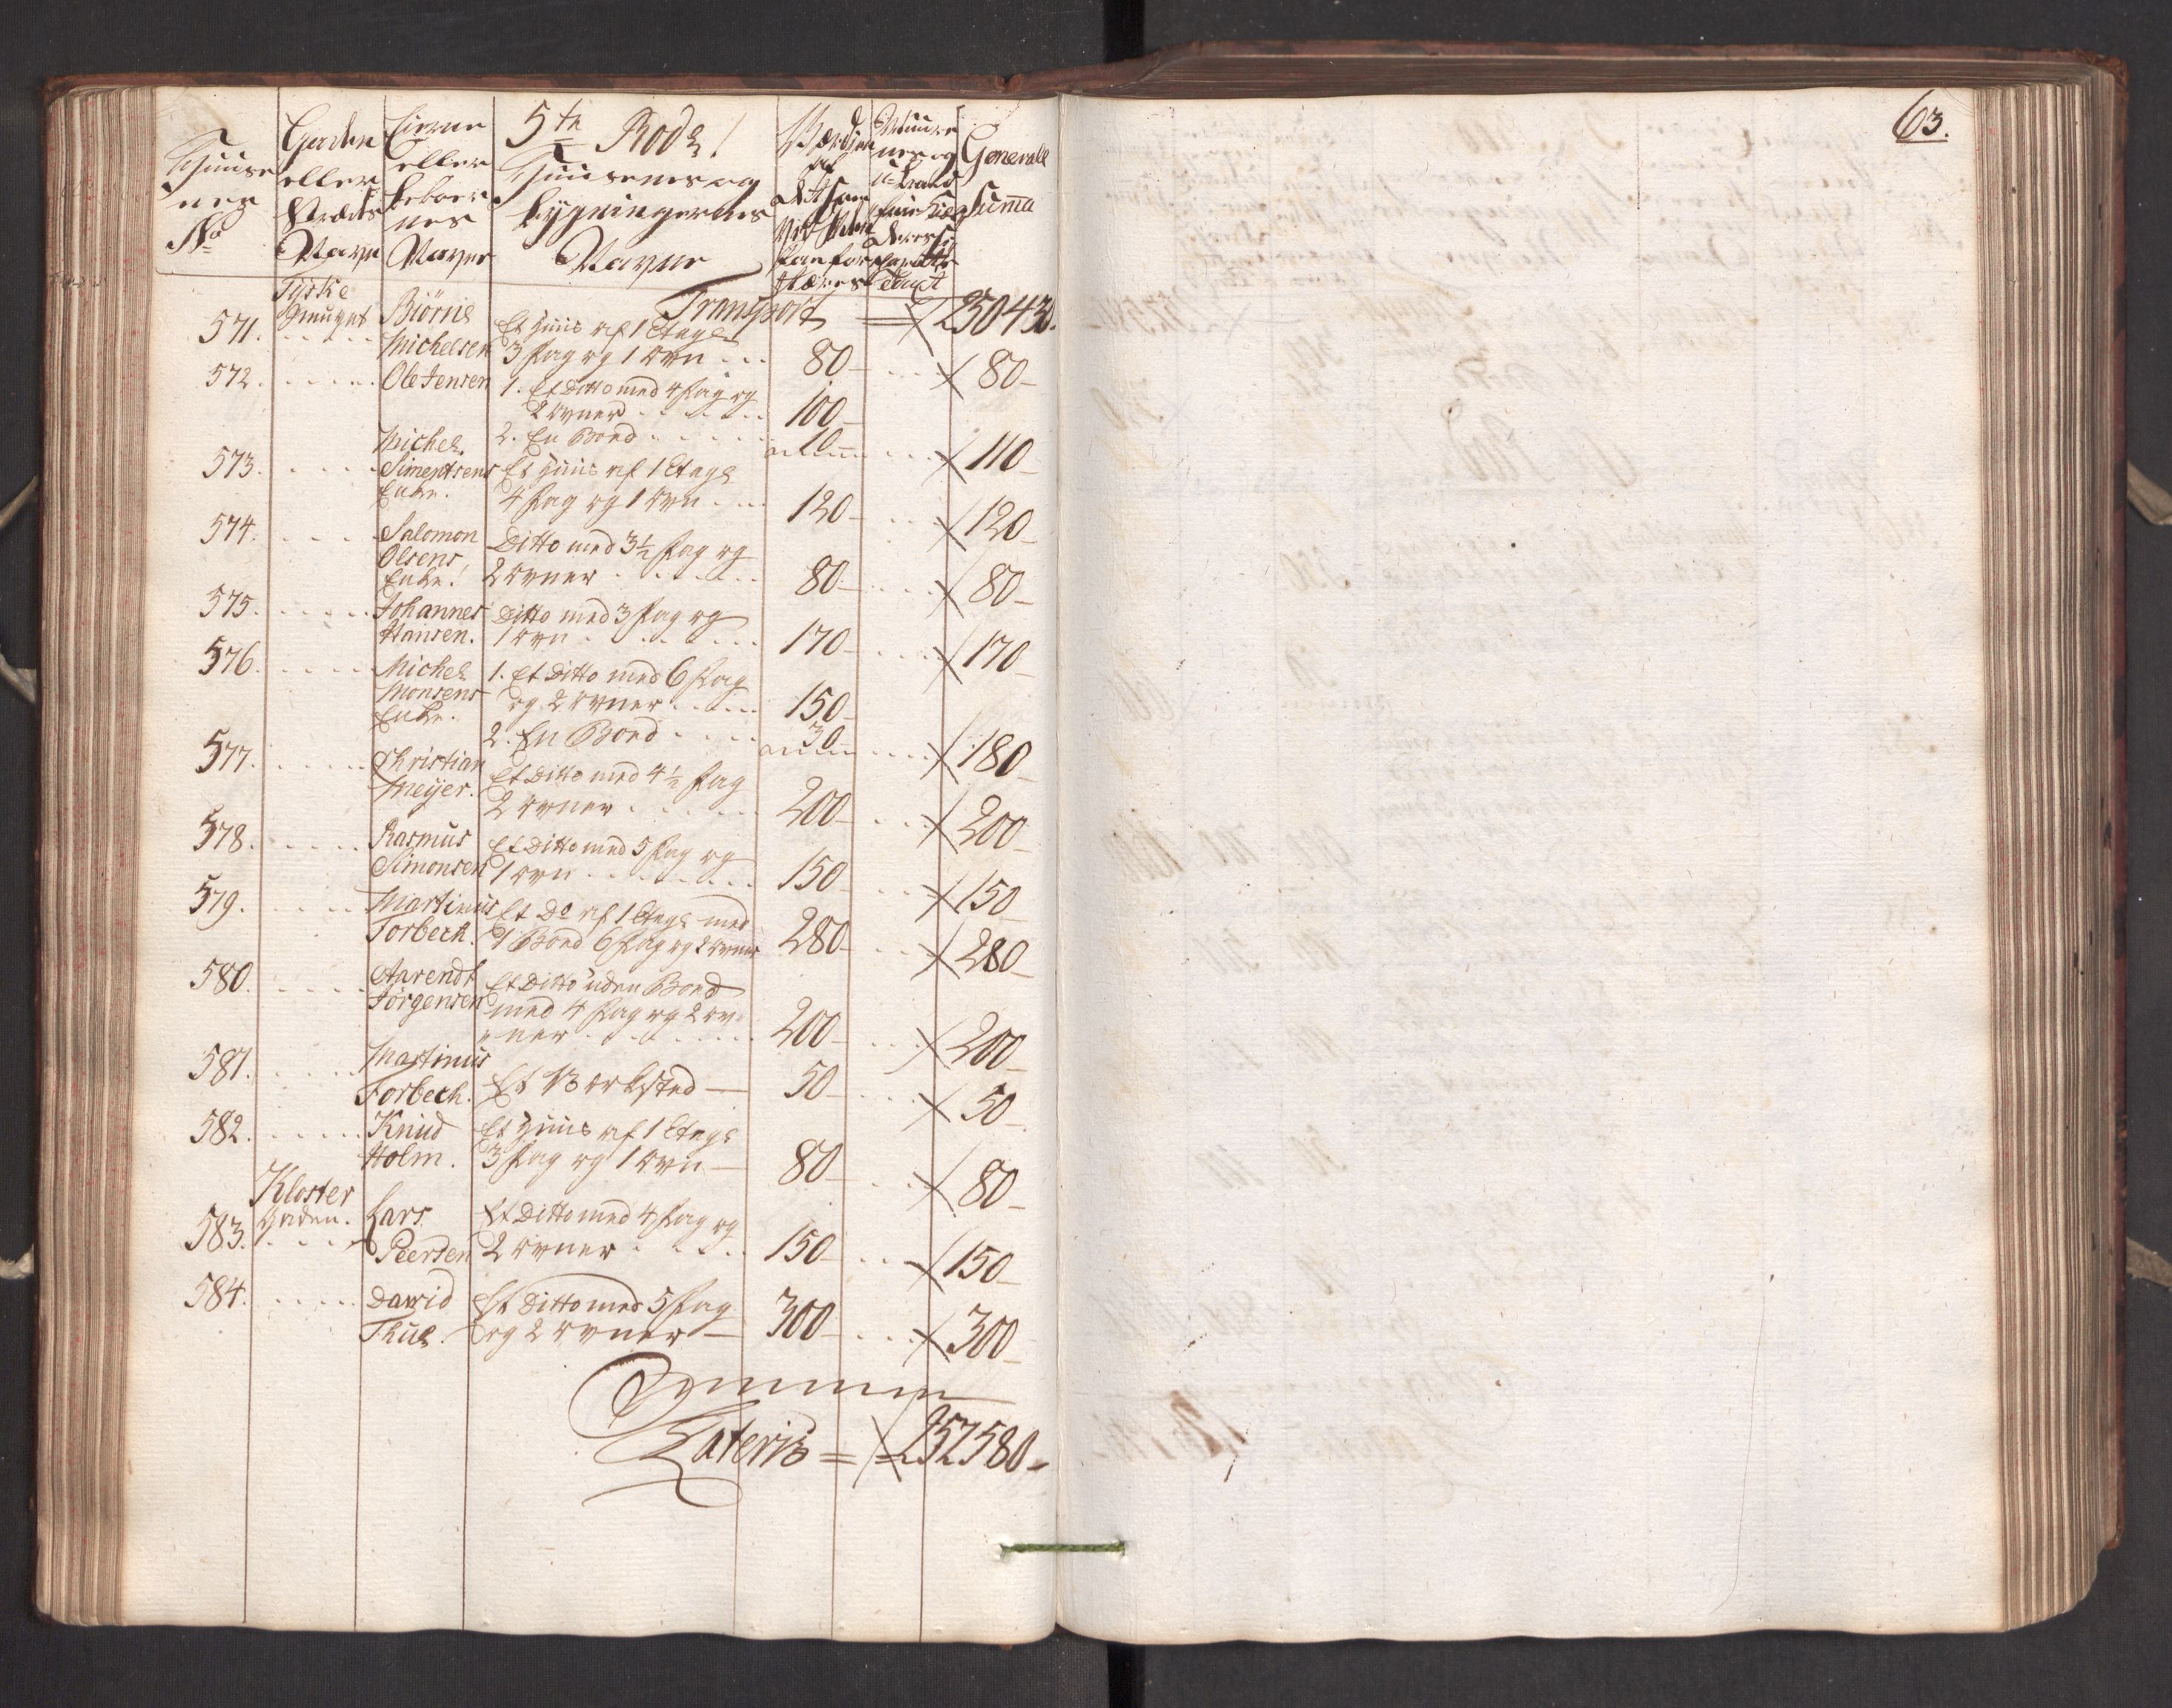 63.
Huuse
nes
No
Gaden
eller
Strædets
Navn
Eierne
eller
beboer
nes
Navne
5te Rode!
Huusenes og
bygningernes
Navne
Værdien
af
det som
ved Ilden
kan for
tæres
Muure
nes og
Generale
Suma
Tydske
Smuget
Transport = 250430.
571. Biørne Michelsen Et Huus af 1 Etage
3 fag og 1 ovn 80 80
572. Ole Jensen 1. Et Ditto med 4 fag og
2 ovner 100
2. En Boed 10 110
573. Michel Simentsens Enke. Et Huus af 1 Etage
4 fag og 1 ovn 120 120
574. Salomon Olsens Enke! Ditto med 3½ fag og
2 ovner 80 80
575. Johannes Hansen. Ditto med 3 fag og
1 ovn 170 170
576. Michel Monsens Enke. 1. Et Ditto med 6 fag
og 2 ovner 150
2. En Boed 30 180
577. Christian Meyer. Et Ditto med 4½ fag
2 ovner 200 200
578. Rasmus Simonsen Et Ditto med 5 fag og
1 ovn 150 150
579. Martinus Forbech. Et Do af 1 Etage med
1 Boed 6 fag og 2 ovner 280 280
580. Aarendt Jørgensen Et Ditto uden Boed
med 4 fag og 2 ov
ner 200 200
581. Martinus Forbech. Et Værksted 50 50
582. Knud Holm. Et Huus af 1 Etage
3 fag og 1 ovn 80 80
Kloster
Gaden.
583. Lars Peersen Et Ditto med 4 fag og
2 ovner 150 150
584. David Thue. Et Ditto med 5 fag
og 2 ovner 300 300
Summa
Lateris = 252580